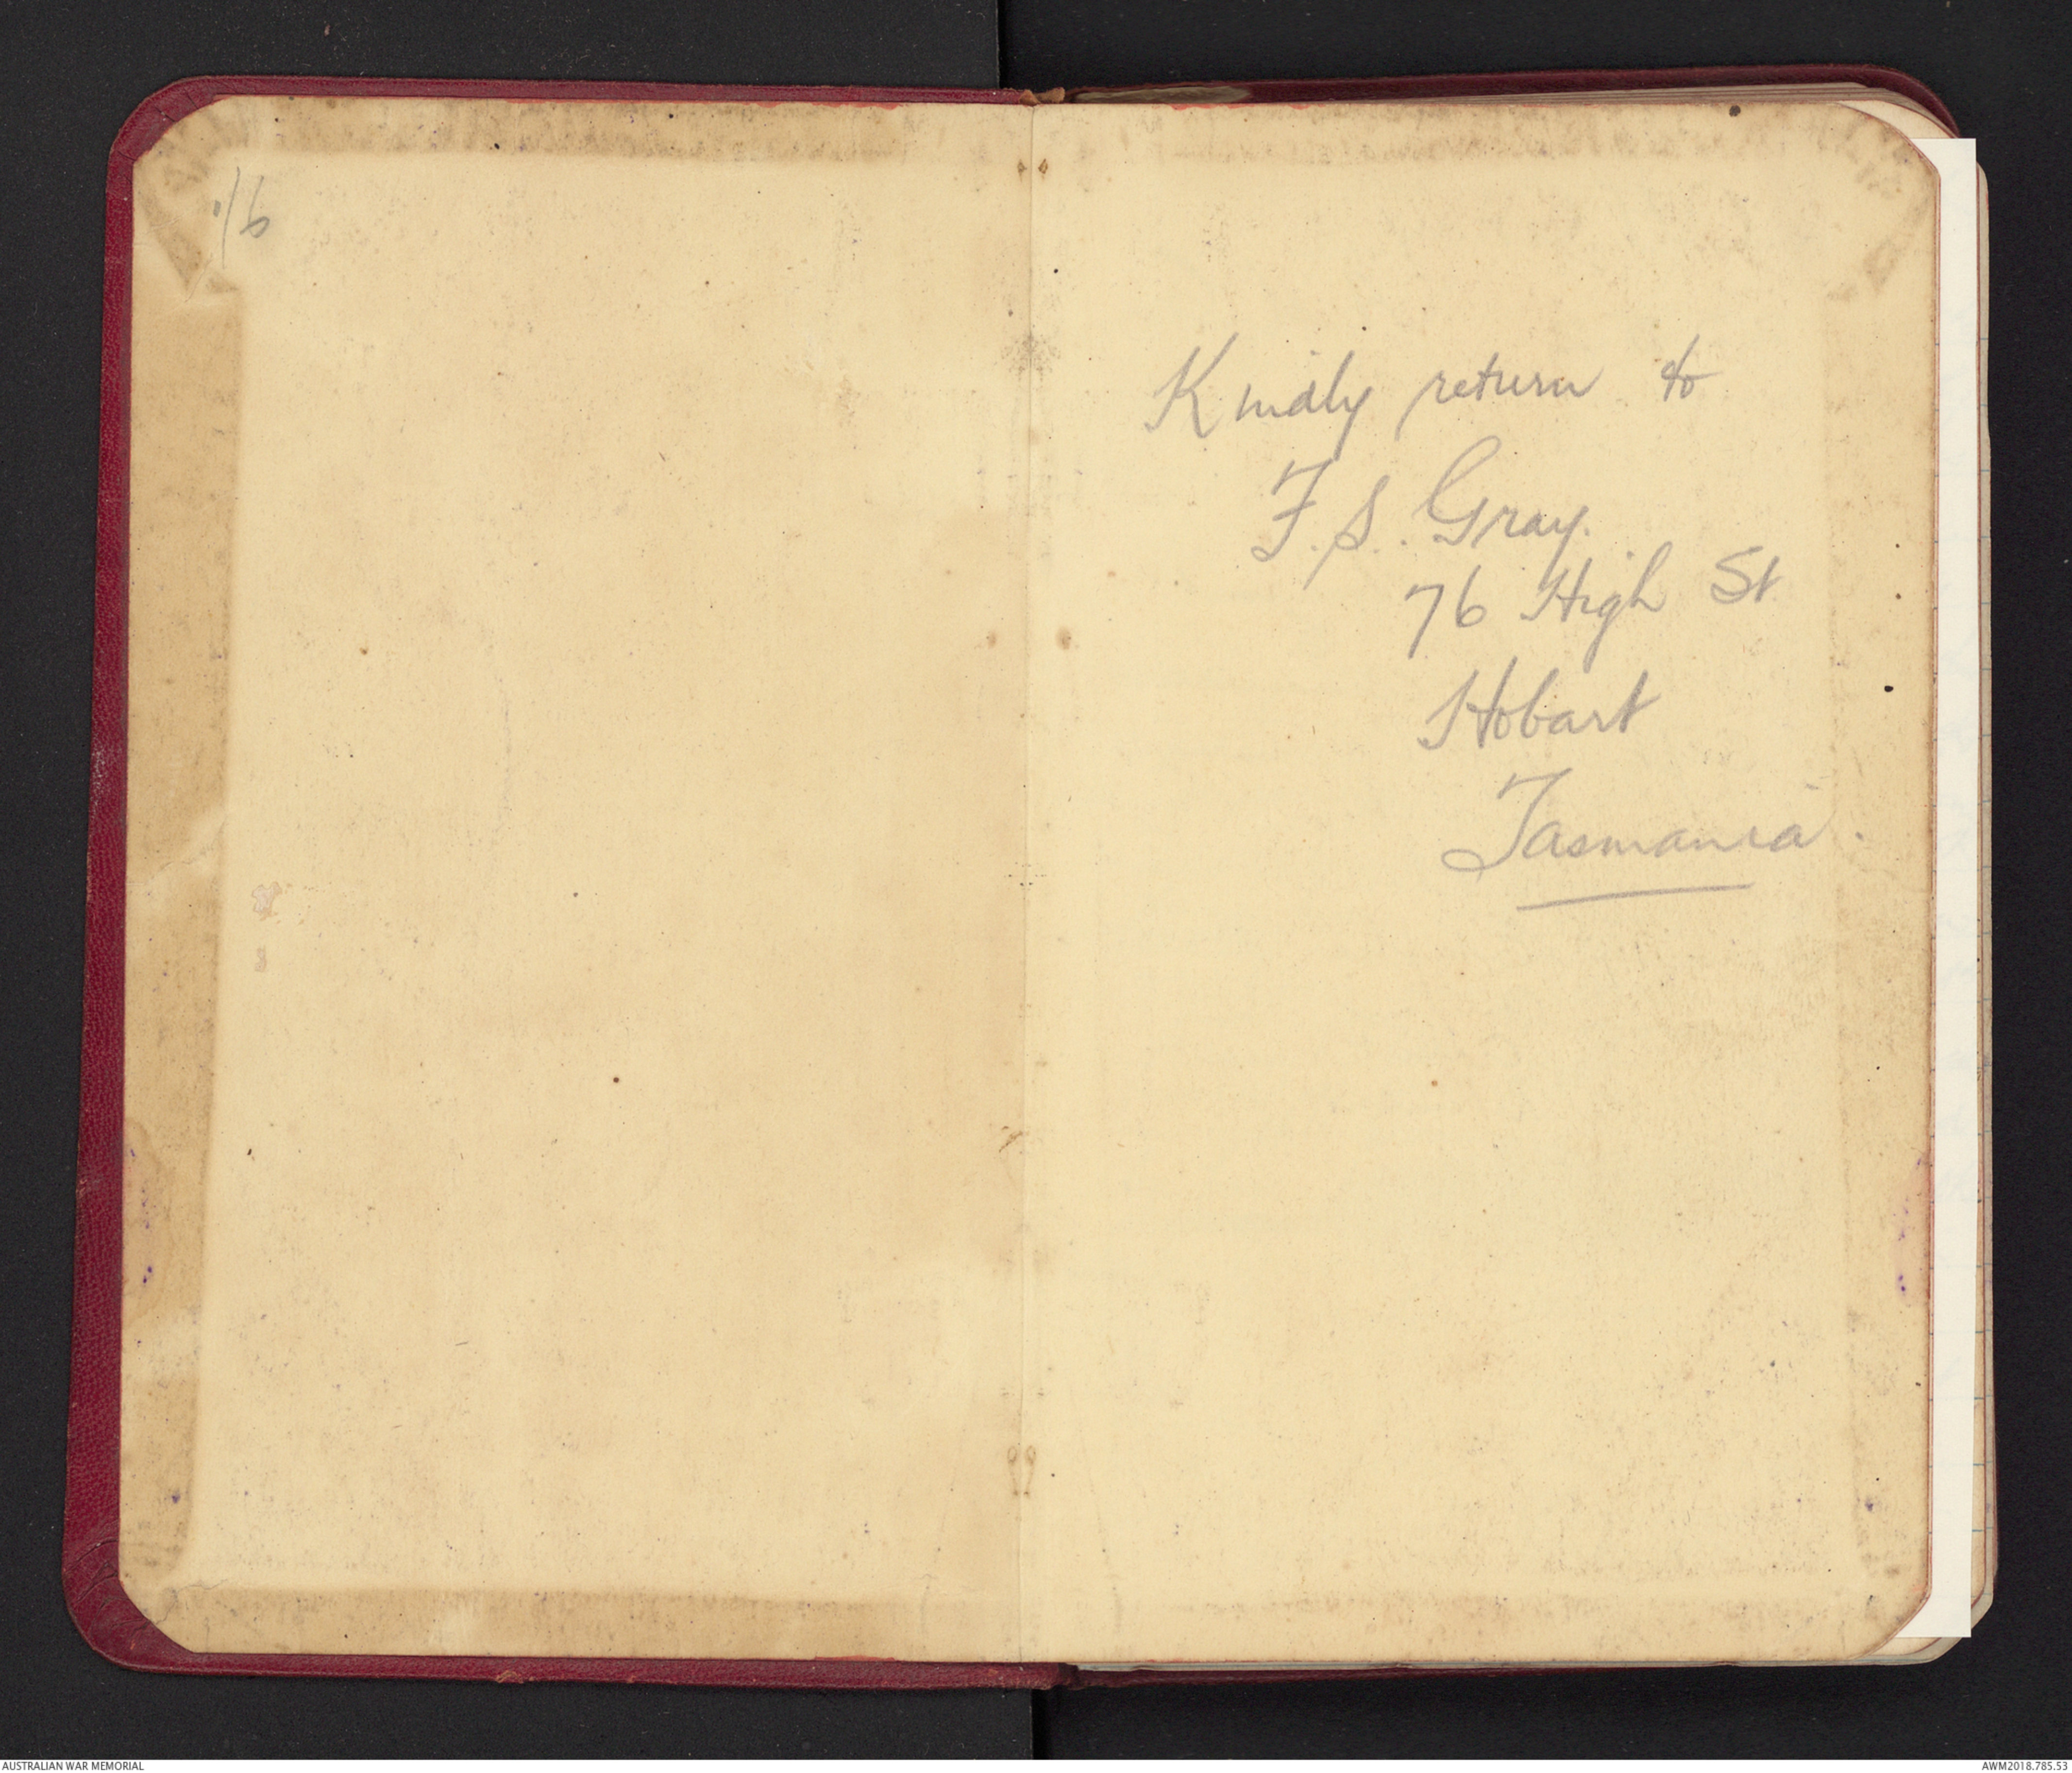 1/6
Kindly return to
F. S. Gray.
76 High St
Hobart
Tasmania.
AUSTRALIAN WAR MEMORIAL
AWM2018.785.53